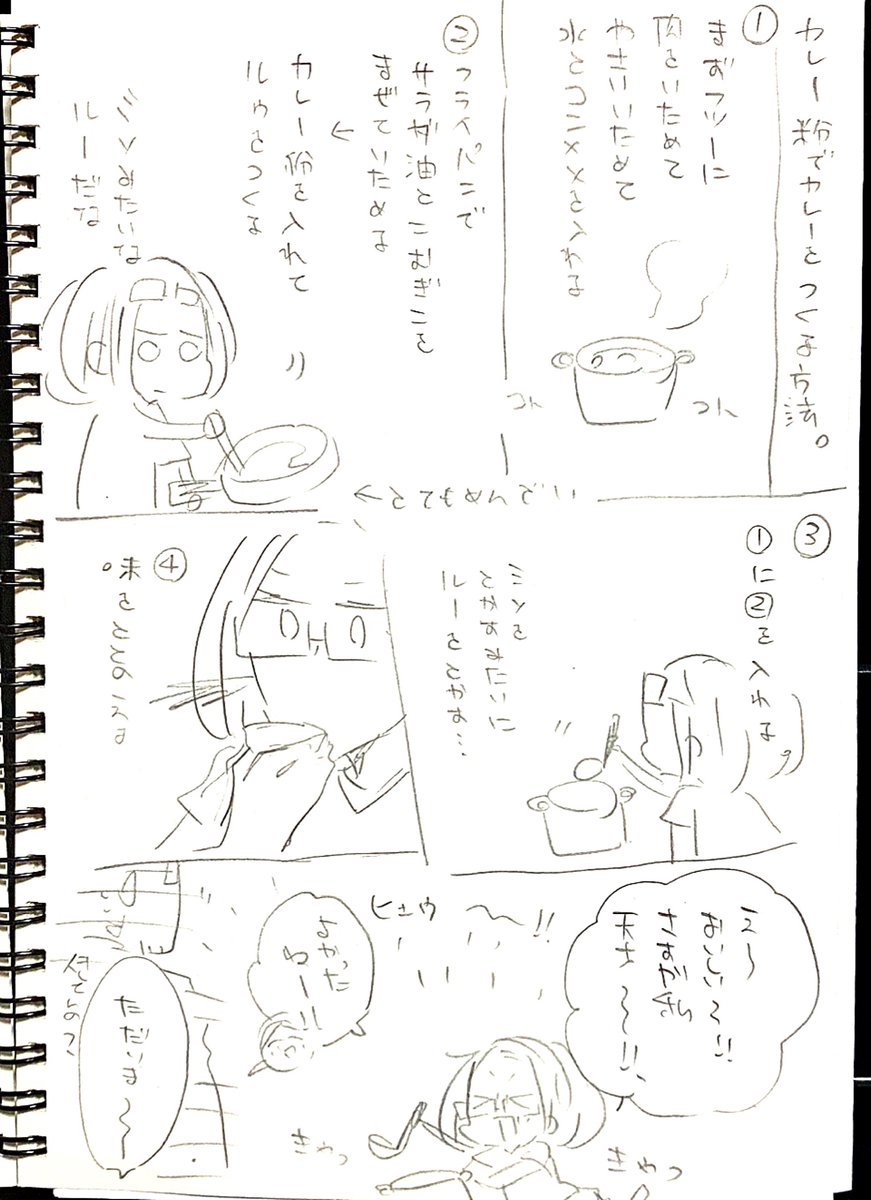 カレー粉でカレーをつくる方法。
①
まずフツーに
肉をいためて
やさいいためて
水とコンソメを入れる
コト
コト
②フライパンで
サラダ油とこむぎこを
まぜていためる
↓
カレー粉を入れて
ルウをつくる
ミソみたいな
ルーだな
③
①に②を入れる
ミソを
とかすみたいに
ルーをとかす…
④
味をととのえる。
え〜
おいしい〜!!
さすが私
天才〜〜!!
ヒュウ〜!!
よかった
ねー!!
きゃっ
きゃっ
ただいま〜〜